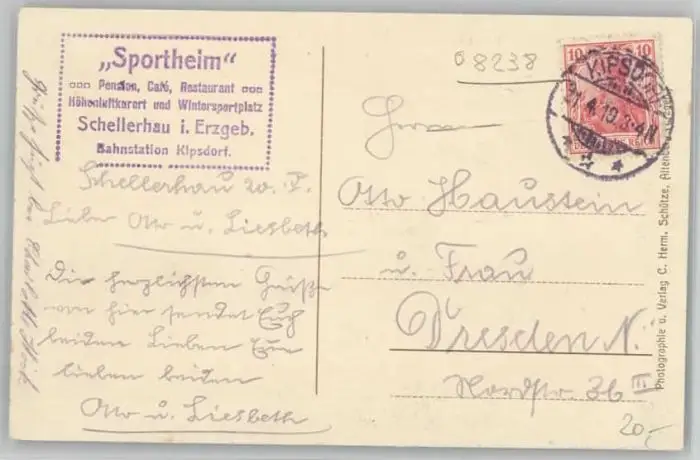 „Sportheim“
Pension, Café, Restaurant
Höhenluftkurort und Wintersportplatz
Schellerhau i. Erzgeb.
Bahnstation Kipsdorf.
08238
10 10
KIPSDORF
Schellerhau 20.
Liebe Otto u. Liesbeth
Die herzlichsten Grüße
von hier sendet Euch
beiden Lieben Eure
lieben beiden
Otto u. Liesbeth
Herrn
Otto Haustein
u. Frau
Dresden N.
Nordstr. 36 III
20,-
Photographie u. Verlag C. Herm. Schütze, Altenberg